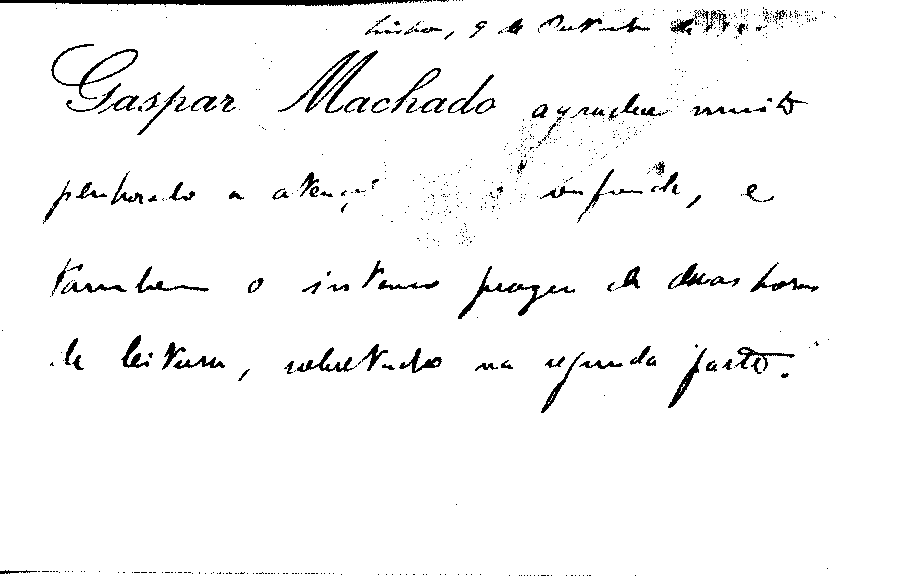 Lisboa, 9 de Outubro de
Gaspar Machado agradece muito
penhorado a atenção confunde, e
tambem o intenso prazer de duas horas
de leitura, sobretudo na segunda parte.